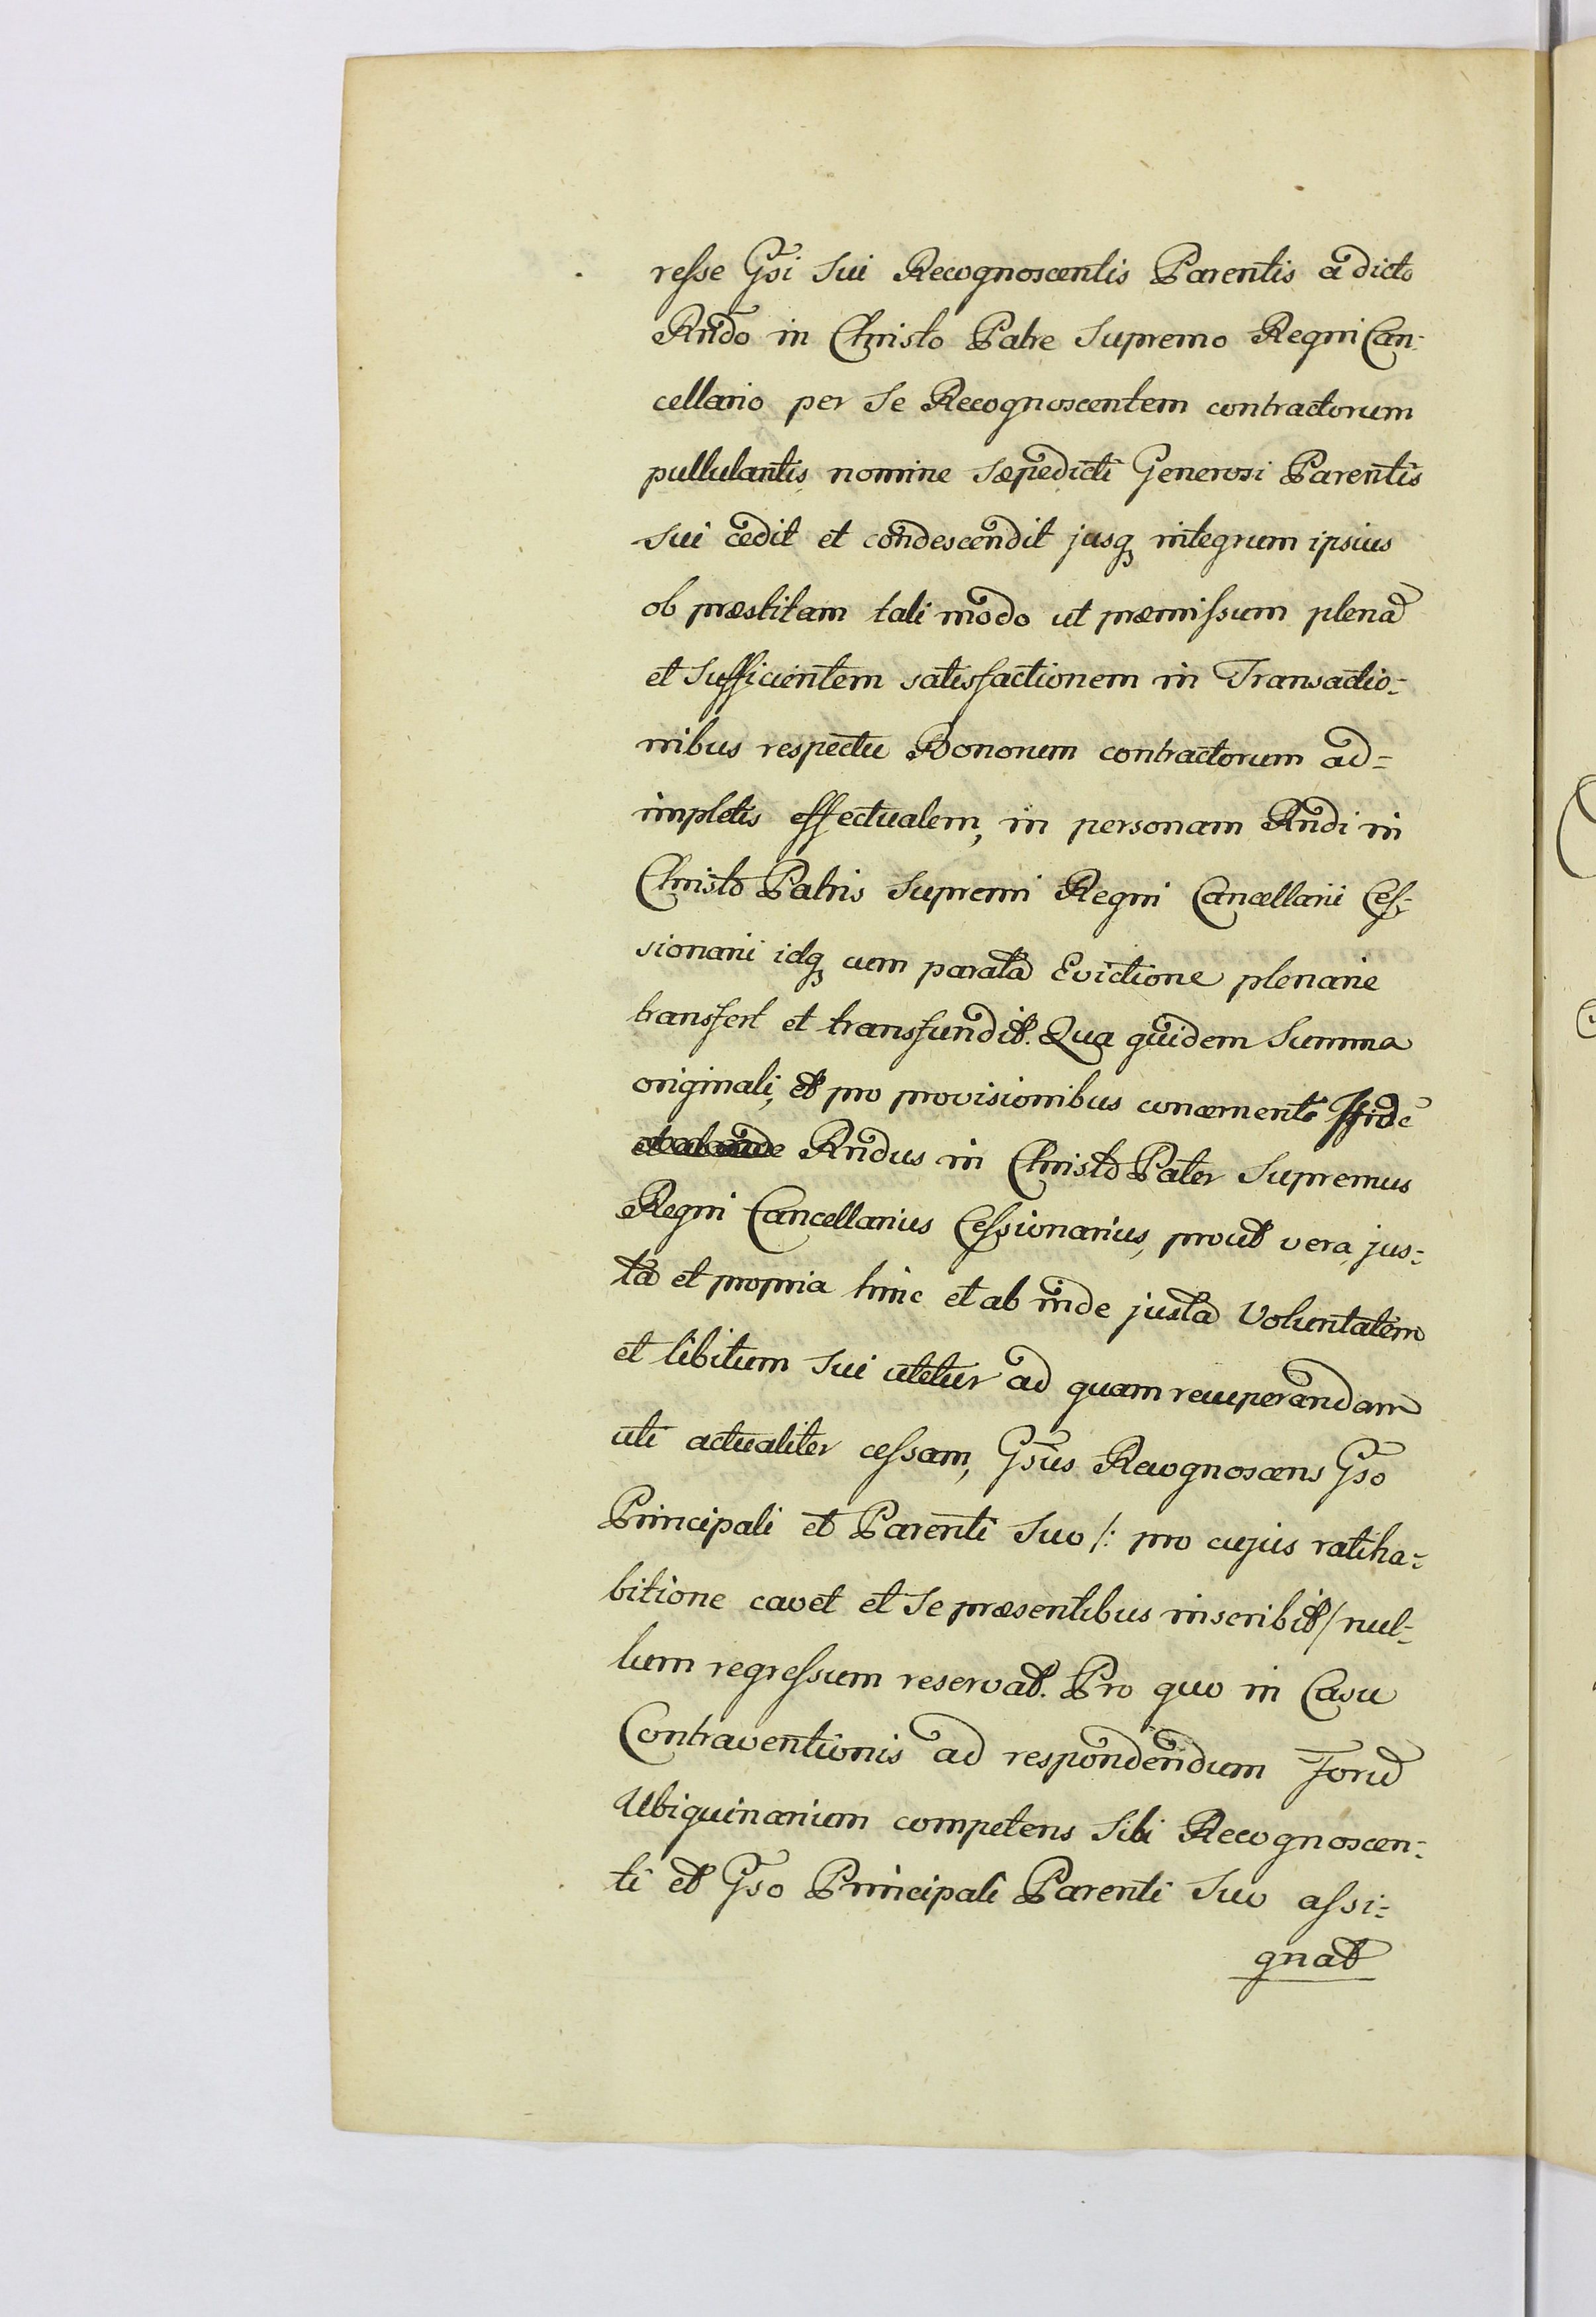 resse Gsi Sui Recognoscentis Parentis a dicto
Rndo in Christo Patre Supremo Regni Can-
cellario per Se Recognoscentem contractorum
pullulantis nomine sæpedicti Generosi Parentis
sui cedit et condescendit jusq integrum ipsius
ob præstitam tali modo ut præmissum plenã
et Sufficientem satisfactionem in Transactio-
nibus respectu Bonorum contractorum ad=
impletis effectualem, in personam Rndi in
Christo Patris Supremi Regni Cancellarii Ces-
sionarii idq cum parata Evictione plenarie
transfert et transfundit. Qua quidem Summa
originali, et pro provisionibus concernente
Rndus in Christo Pater Supremus
Regni Cancellarius Cessionarius, prout vera, jus-
ta et propria hinc et ab inde juxta Voluntatem
et libitum Sui utetur ad quam recuperandam
uti actualiter cessam, Gsus Recognoscens Gso
Principali et Parenti Suo /: pro cujus ratiha-
bitione cavet et Se præsentibus inscribit / nul-
lum regressum reservat. Pro quo in Casu
Contraventionis ad respondendum Forũ
Ubiquinarium competens Sibi Recognoscen-
ti et Gso Principali Parenti Suo assi-
gnat